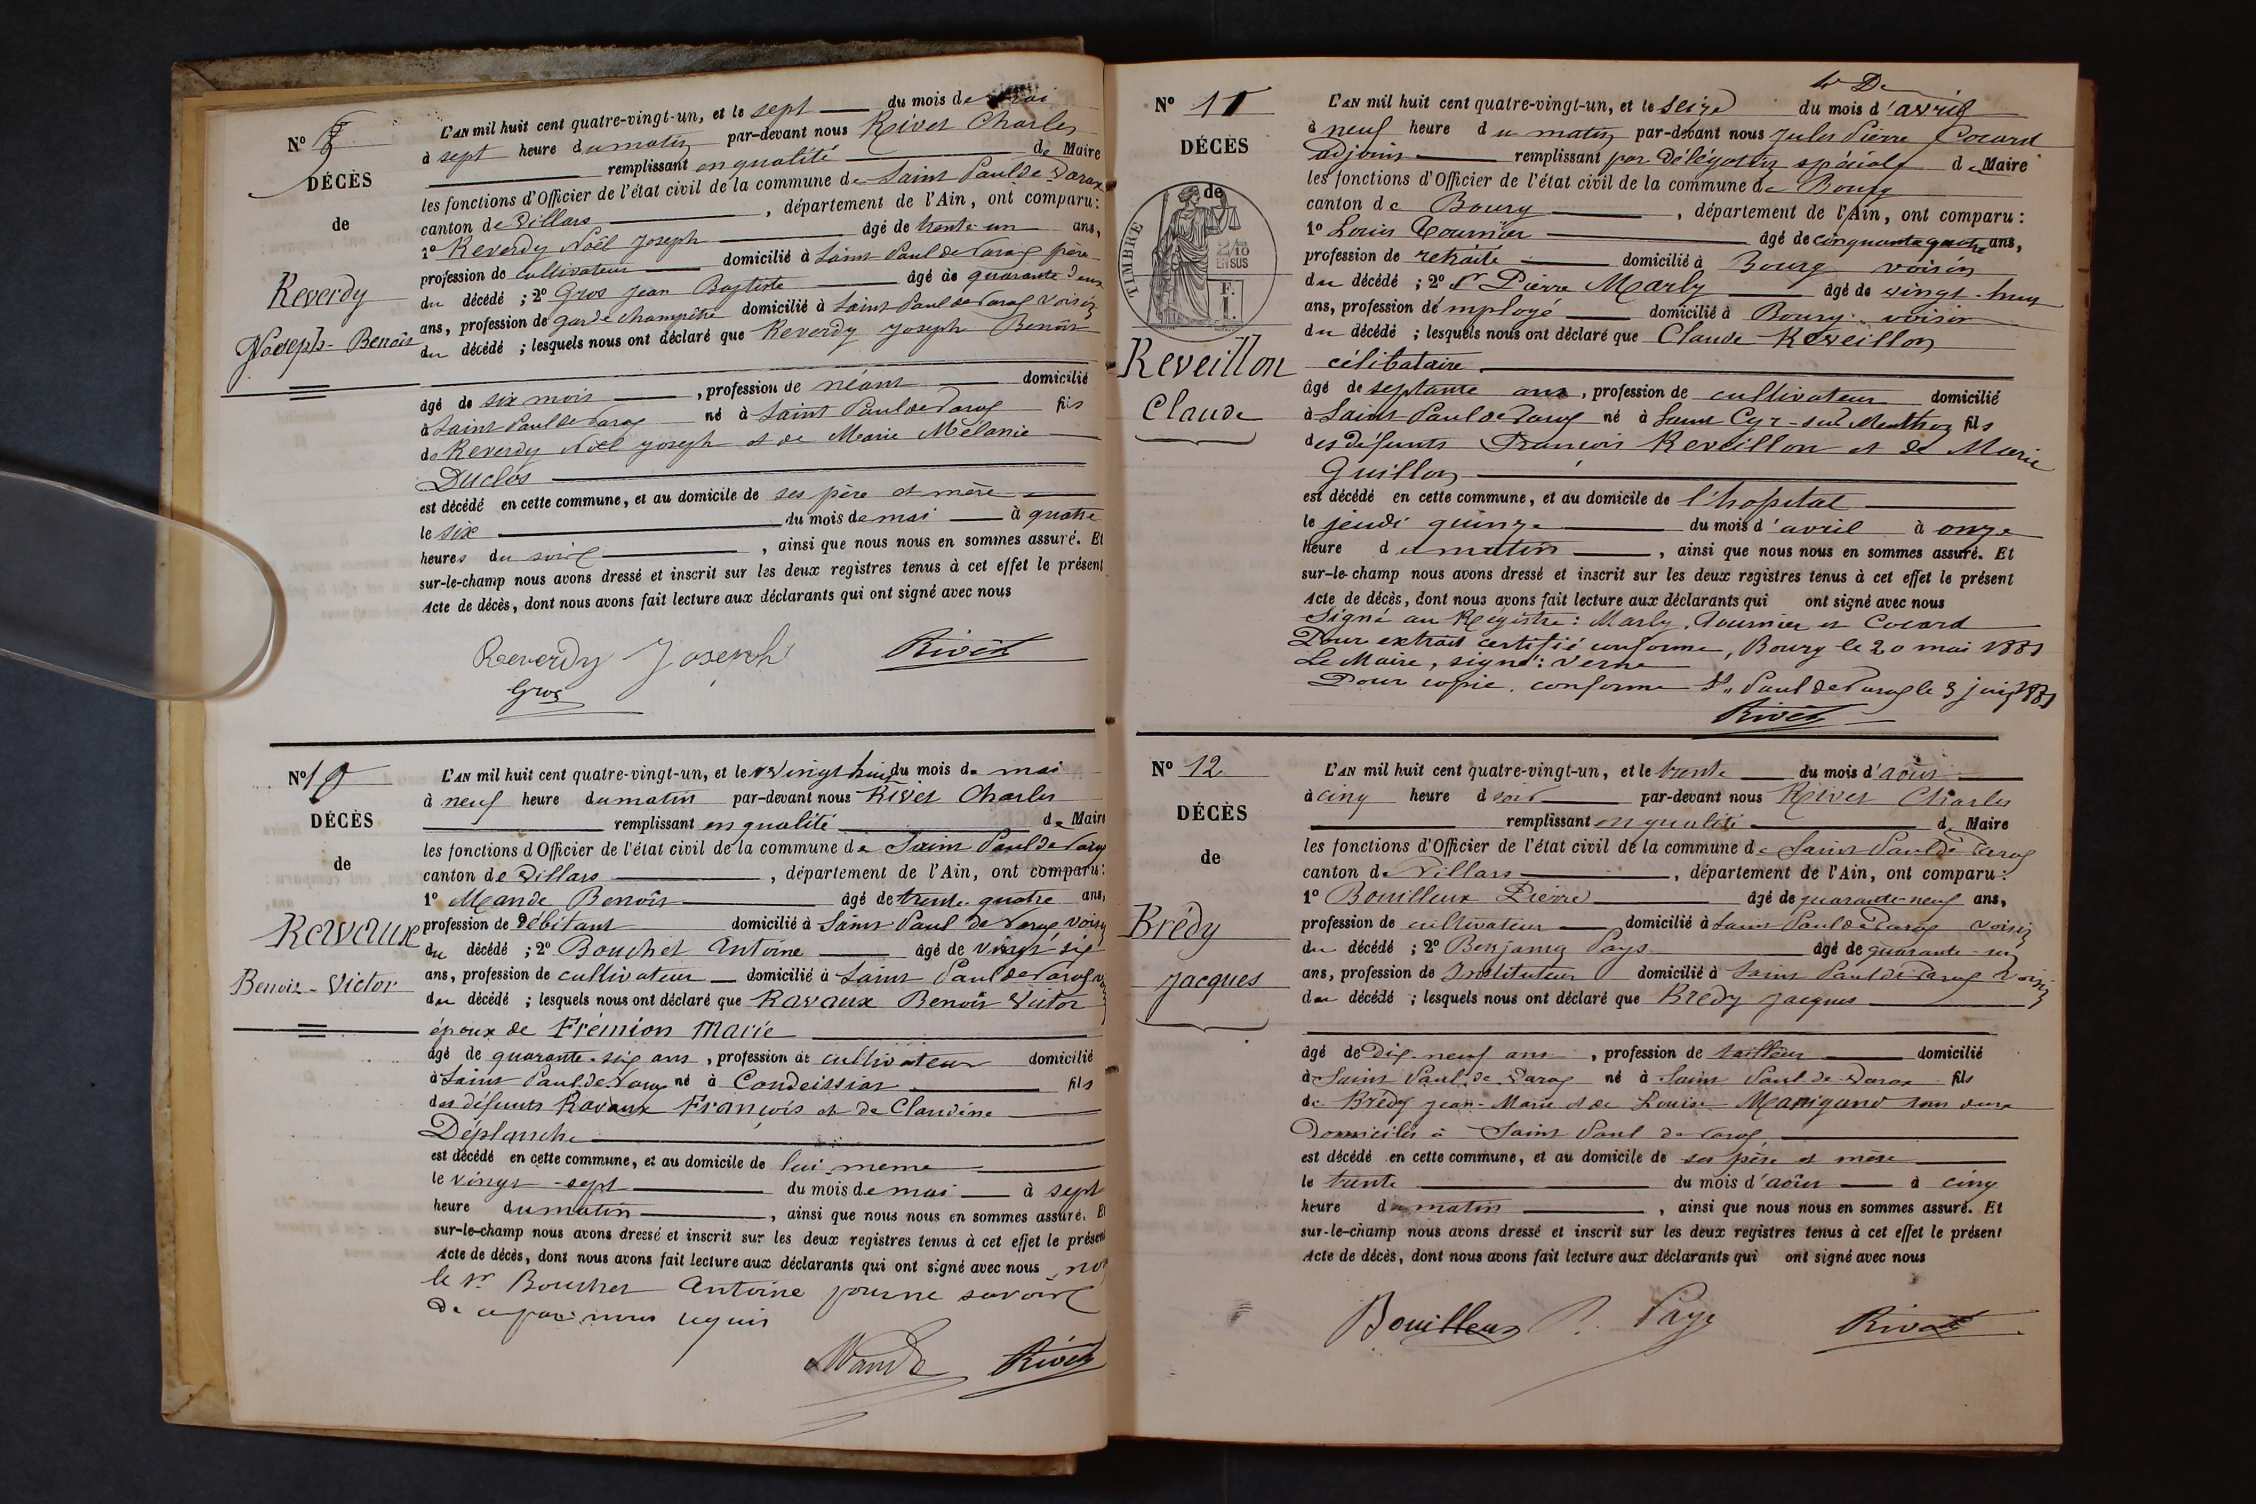 N°
DÉCÈS
de
Reverdy
Joseph-Benoît
L'AN mil huit cent quatre-vingt-un, et le sept du mois de mai
à sept heure du matin par-devant nous Rivet Charles
remplissant en qualité de Maire
les fonctions d'Officier de l'état civil de la commune de Saint Paul de Varax
canton de Villars , département de l'Ain, ont comparu:
1° Reverdy Noël Joseph âgé de trente-un ans,
profession de cultivateur domicilié à Saint Paul de Varax père
du décédé ; 2° Gros Jean Baptiste âgé de quarante deux
ans, profession de garde champêtre domicilié à Saint Paul de Varax voisin
du décédé ; lesquels nous ont déclaré que Reverdy Joseph Benoît
âgé de six mois , profession de néant domicilié
à Saint Paul de Varax né à Saint Paul de Varax fils
de Reverdy Noël Joseph et de Marie Mélanie
Duclos
est décédé en cette commune, et au domicile de ses père et mère
le six du mois de mai à quatre
heures du soir , ainsi que nous nous en sommes assuré. Et
sur-le-champ nous avons dressé et inscrit sur les deux registres tenus à cet effet le présent
Acte de décès, dont nous avons fait lecture aux déclarants qui ont signé avec nous
Reverdy Joseph Rivet
Gros
N° 10
DÉCÈS
de
Ravaux
Benoit-Victor
L'AN mil huit cent quatre-vingt-un, et le vingt huit du mois de mai
à neuf heure du matin par-devant nous Rivet Charles
remplissant en qualité de Maire
les fonctions d'Officier de l'état civil de la commune de Saint Paul de Varax
canton de Villars , département de l'Ain, ont comparu:
1° Mande Benoît âgé de trente-quatre ans,
profession de Débitant domicilié à Saint Paul de Varax voisin
du décédé ; 2° Bouchet Antoine âgé de vingt six
ans, profession de cultivateur domicilié à Saint Paul de Varax
du décédé ; lesquels nous ont déclaré que Ravaux Benoît Victor
époux de Frémion Marie
âgé de quarante-six ans , profession de cultivateur domicilié
à Saint Paul de Varax né à Condeissiat fils
des défunts Ravaux François et de Claudine
Déplanche
est décédé en cette commune, et au domicile de lui-meme
le vingt-sept du mois de mai à sept
heure du matin , ainsi que nous nous en sommes assuré. Et
sur-le-champ nous avons dressé et inscrit sur les deux registres tenus à cet effet le présent
Acte de décès, dont nous avons fait lecture aux déclarants qui ont signé avec nous, non
le Sr Bouchet Antoine pour ne savoir
de ce par nous requis
Mande Rivet
N° 11
DÉCÈS
de
TIMBRE
2/10
EN SUS
Reveillon
Claude
L'AN mil huit cent quatre-vingt-un, et le seize du mois d'avril
à neuf heure du matin par-devant nous Jules Pierre Cocard
adjoint remplissant par délégation spéciale de Maire
les fonctions d'Officier de l'état civil de la commune de Bourg
canton de Bourg , département de l'Ain, ont comparu:
1° Louis Tournier âgé de cinquante quatre ans,
profession de retraité domicilié à Bourg voisin
du décédé ; 2° Pierre Marly âgé de vingt-huit
ans, profession d'employé domicilié à Bourg voisin
du décédé ; lesquels nous ont déclaré que Claude Reveillon
célibataire
âgé de septante ans , profession de cultivateur domicilié
à Saint Paul de Varax né à Saint Cyr-sur Menthon fils
des défunts François Reveillon et de Marie
Guillon
est décédé en cette commune, et au domicile de l'hopital
le jeudi quinze du mois d'avril à onze
heure du matin , ainsi que nous nous en sommes assuré. Et
sur-le-champ nous avons dressé et inscrit sur les deux registres tenus à cet effet le présent
Acte de décès, dont nous avons fait lecture aux déclarants qui ont signé avec nous
Signé au Régistre: Marly, Tournier et Cocard
Pour extrait certifié conforme, Bourg le 20 mai 1881
Le Maire, signé: Verne
Pour copie conforme St Paul de Varax le 3 juin 1881
Rivet
N° 12
DÉCÈS
de
Brédy
Jacques
L'AN mil huit cent quatre-vingt-un, et le trente du mois d'août
à cinq heure d soir par-devant nous Rivet Charles
remplissant en qualité de Maire
les fonctions d'Officier de l'état civil de la commune de Saint Paul de Varax
canton de Villars , département de l'Ain, ont comparu:
1° Bouilleux Pierre âgé de quarante-neuf ans,
profession de cultivateur domicilié à Saint Paul de Varax voisin
du décédé ; 2° Benjamin Pays âgé de quarante-un
ans, profession de Instituteur domicilié à Saint Paul de Varax voisin
du décédé ; lesquels nous ont déclaré que Brédy Jacques
âgé de Dix-neuf ans , profession de tailleur domicilié
à Saint Paul de Varax né à Saint Paul de Varax fils
de Brédy Jean-Marie et de Louise Manigand tous deux
Domiciliés à Saint Paul de Varax
est décédé en cette commune, et au domicile de ses père et mère
le trente du mois d'août à cinq
heure du matin , ainsi que nous nous en sommes assuré. Et
sur-le-champ nous avons dressé et inscrit sur les deux registres tenus à cet effet le présent
Acte de décès, dont nous avons fait lecture aux déclarants qui ont signé avec nous
Bouilleux Rivet